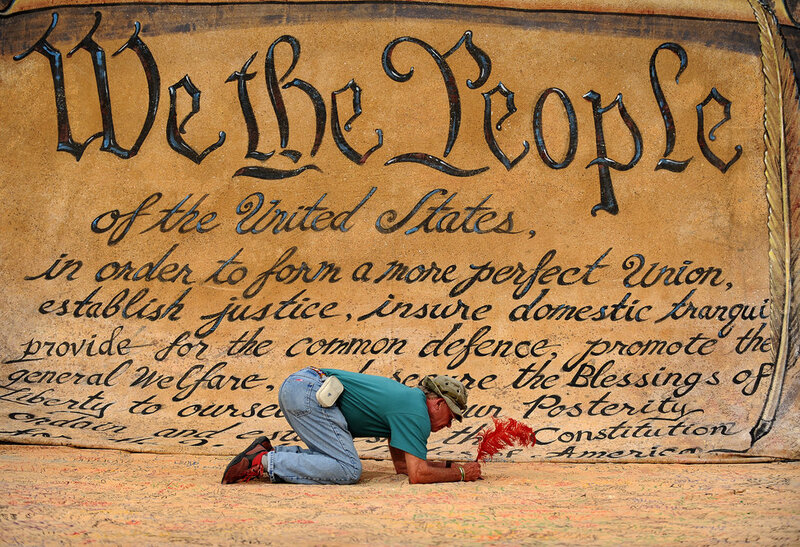 We the People
of the United States,
in order to form a more perfect Union,
establish justice, insure domestic tranqui
provide for the common defence, promote the
general Welfare, secure the Blessings of
Liberty to ourse our Posterity
ordain and the Constitution
for America